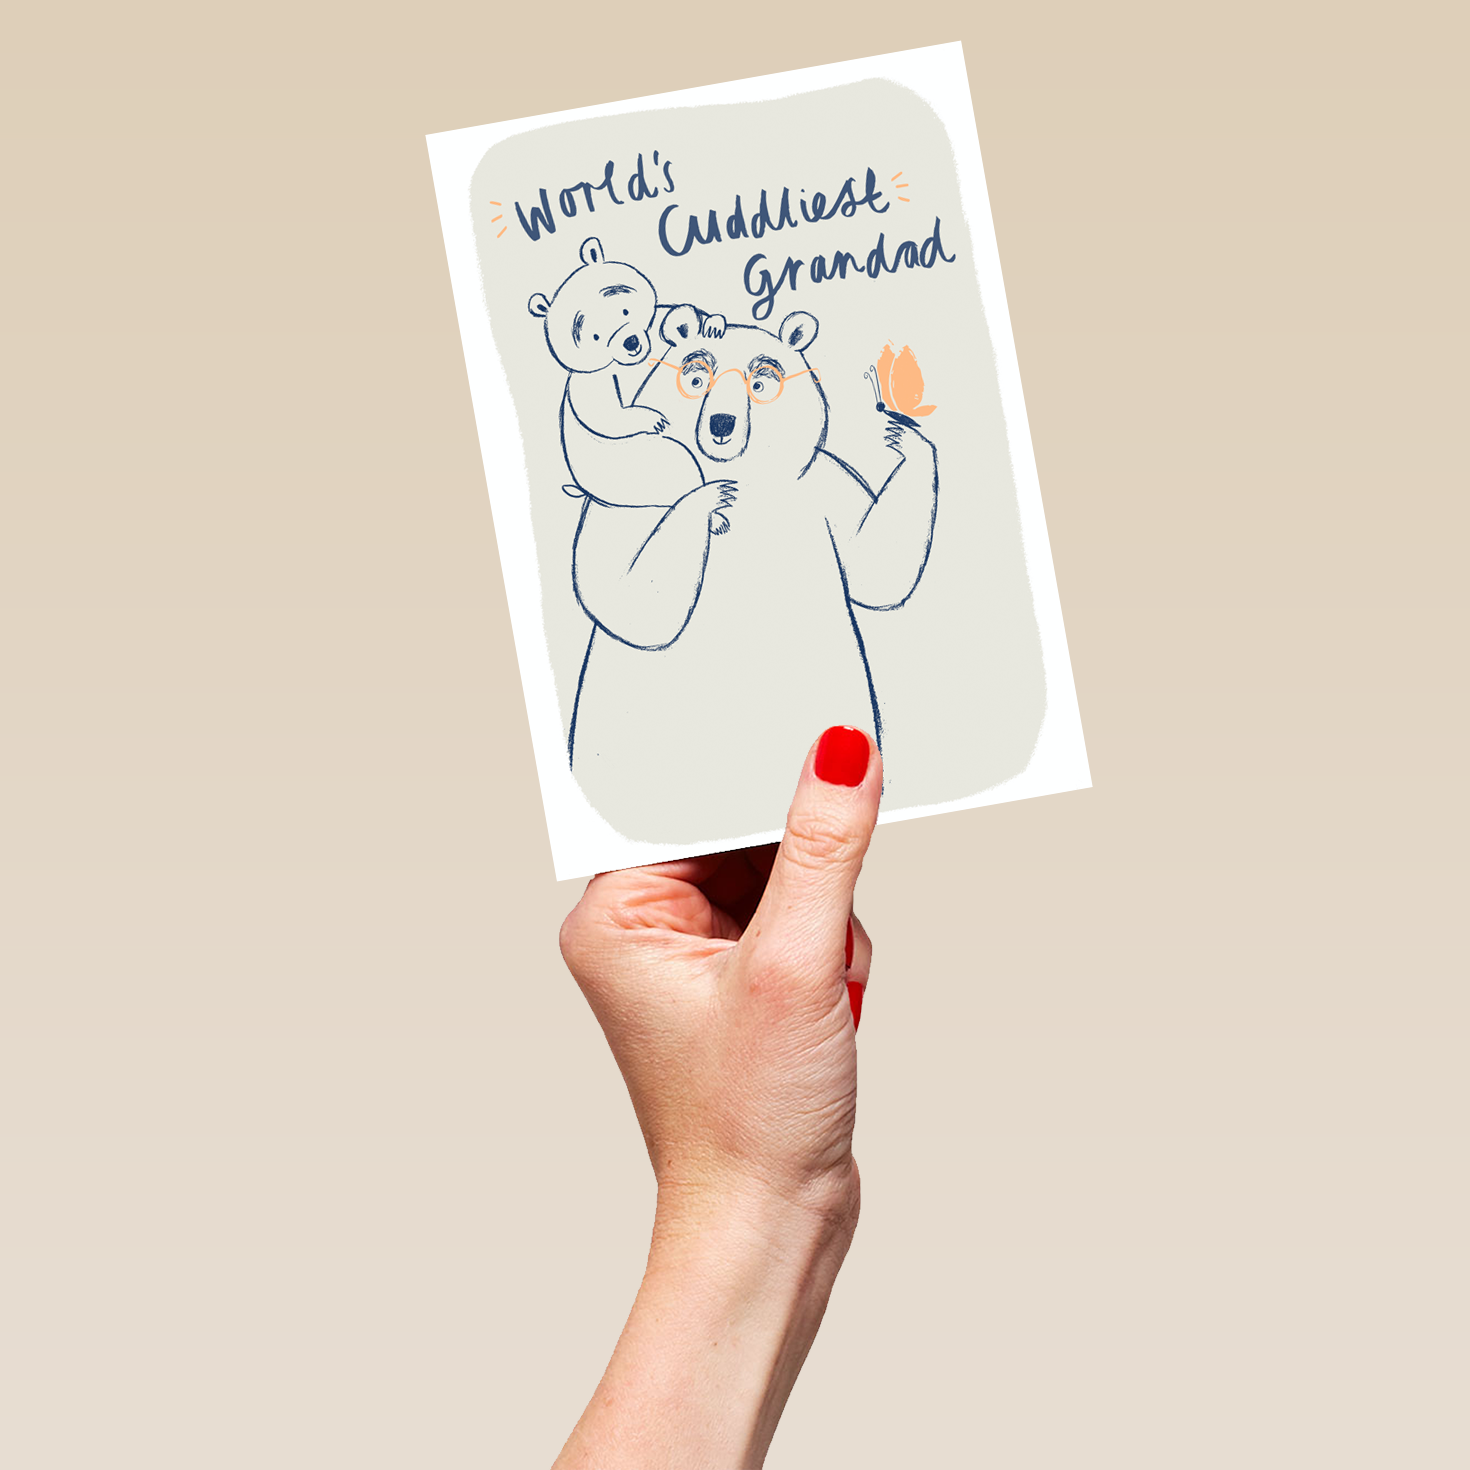 World's
Cuddliest
Grandad